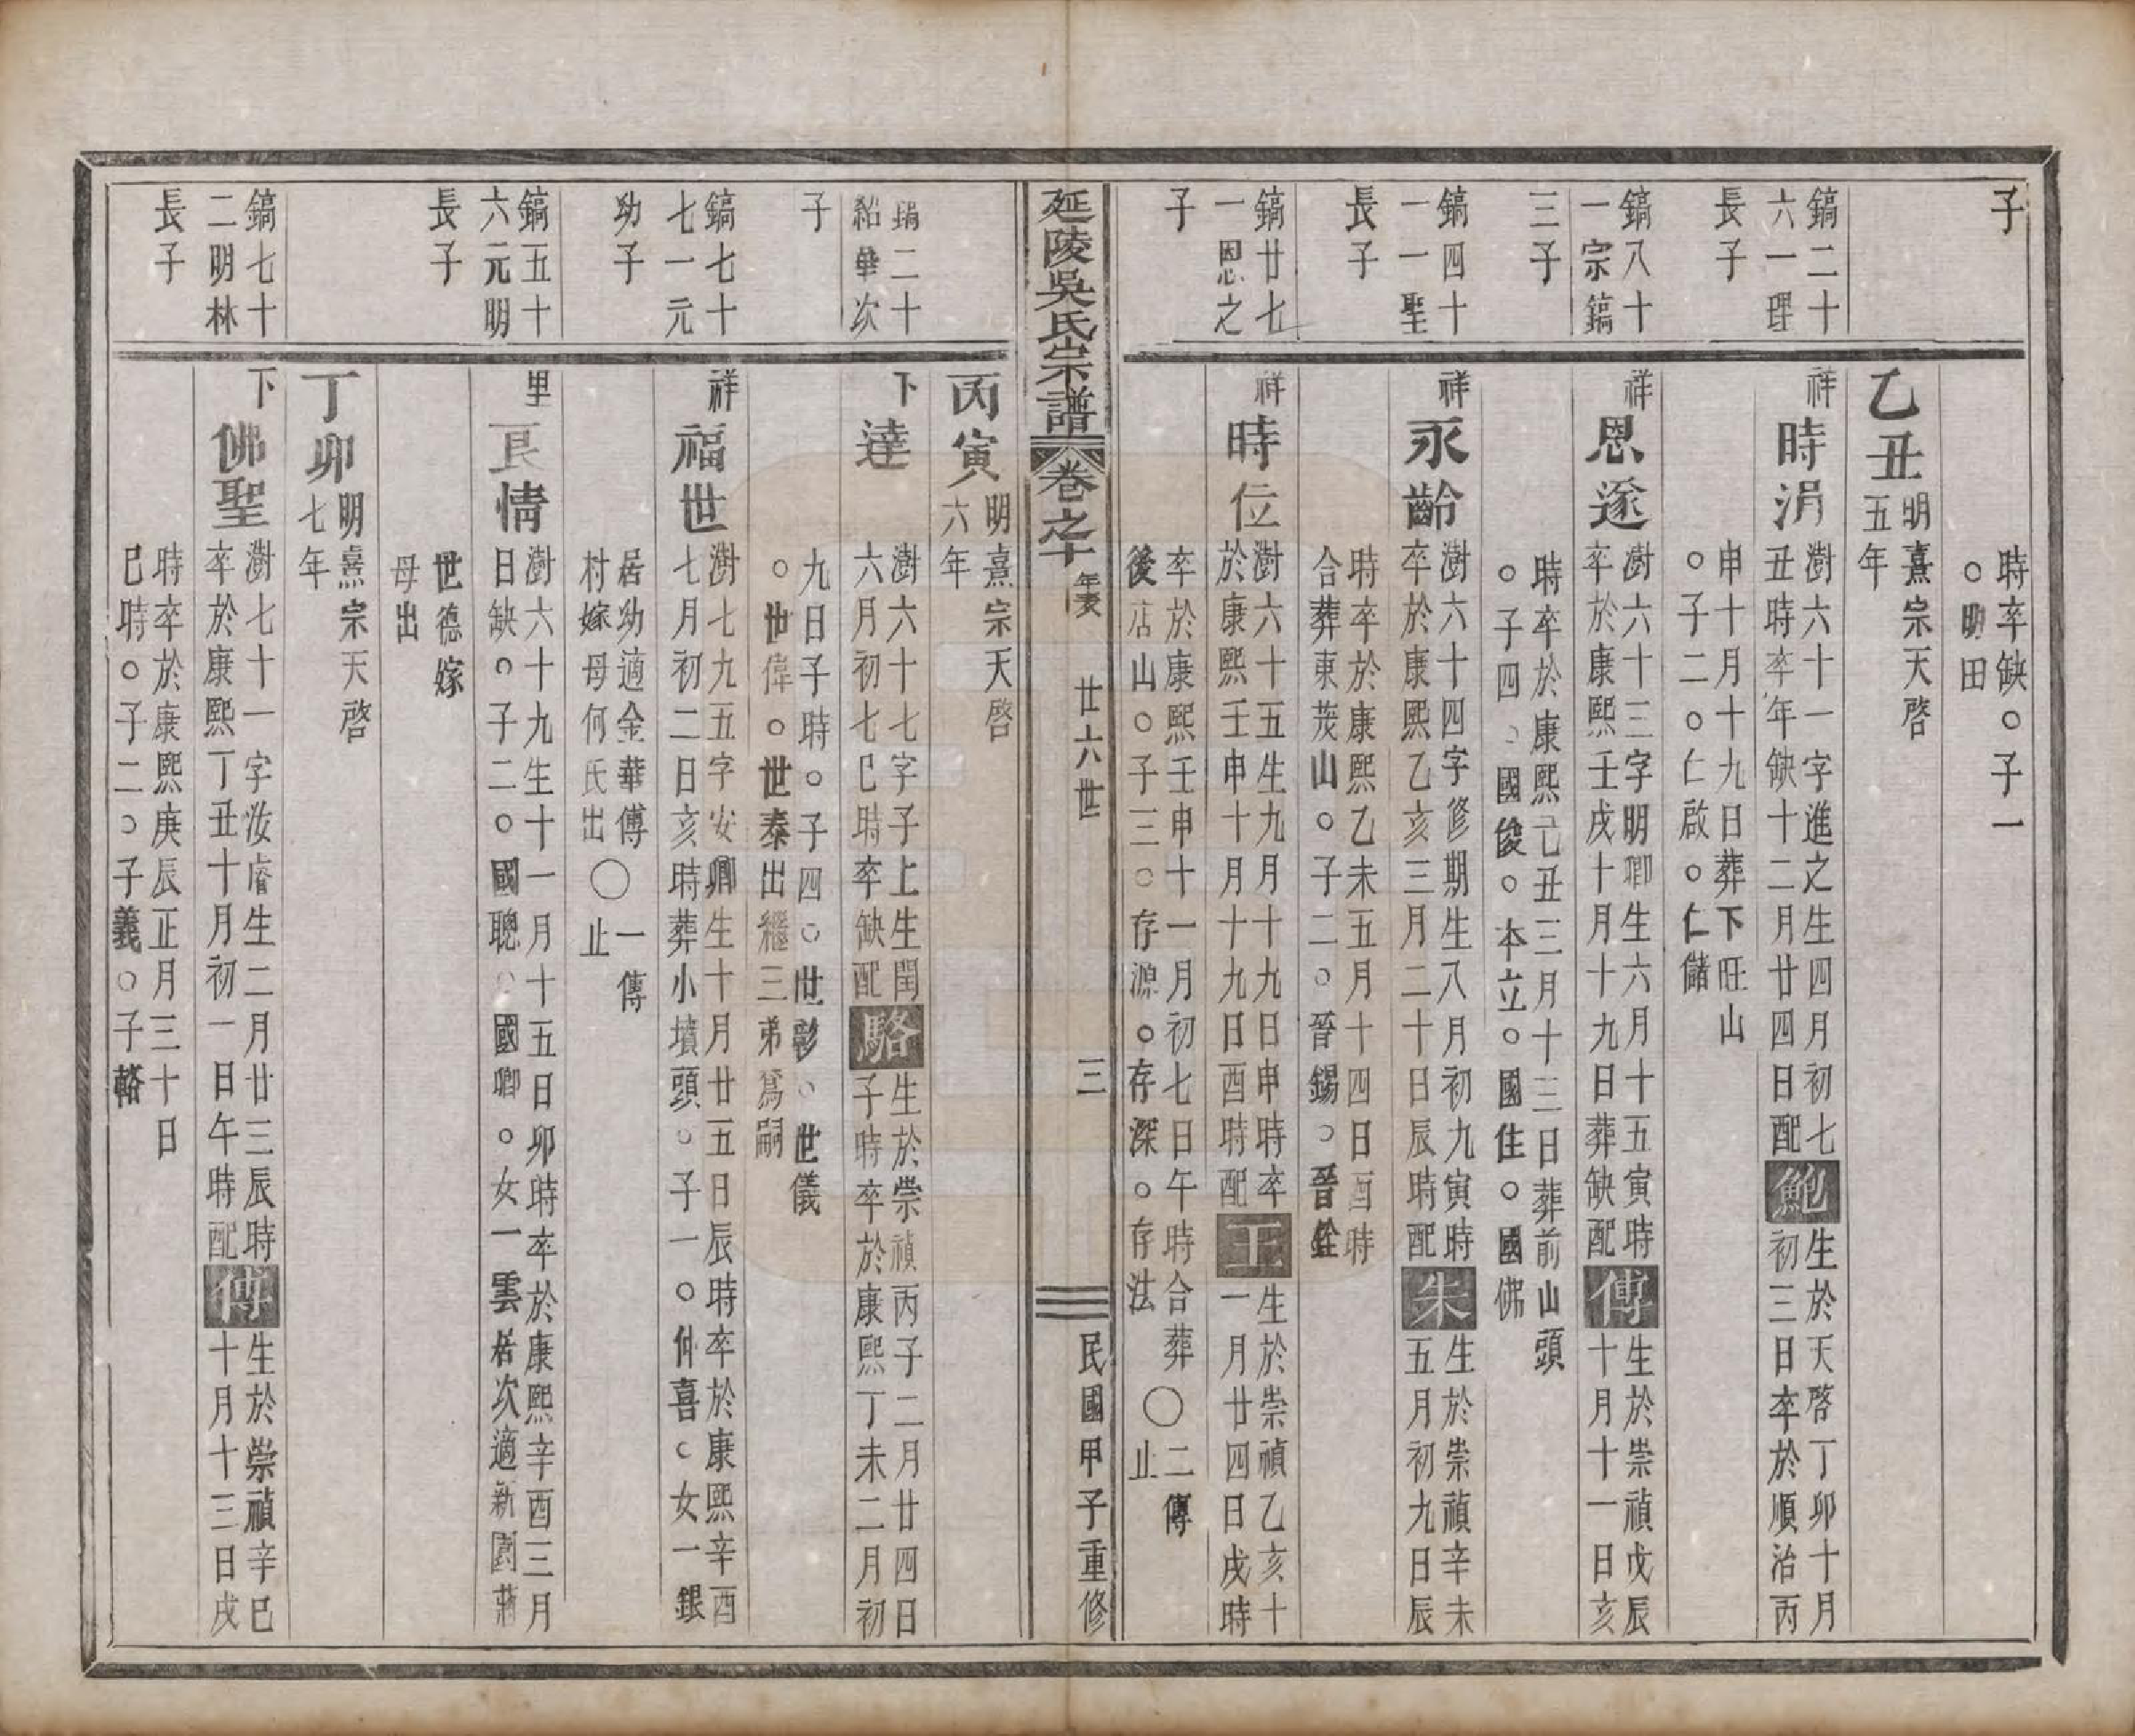 子
時卒缺○子一
○助田
乙丑
明熹宗天啓
五年
鎬二十
六一理
長子
祥
時涓
澍六十一字進之生四月初七
丑時卒年缺十二月廿四日配
鮑
生於天啓丁卯十月
初三日卒於順治丙
申十月十九日葬下旺山
○子二○仁啟○仁儲
鎬八十
一宗鎬
三子
祥
恩遂
澍六十三字明卿生六月十五寅時
卒於康熙壬戌十月十九日葬缺配
傅
生於崇禎戊辰
十月十一日亥
時卒於康熙己丑三月十三日葬前山頭
○子四○國俊○本立○國住○國佛
鎬四十
一一聖
長子
祥
永齡
澍六十四字修期生八月初九寅時
卒於康熙乙亥三月二十日辰時配
朱
生於崇禎辛未
五月初九日辰
時卒於康熙乙未五月十四日酉時
合葬東茂山○子二○晉錫○晉銓
鎬廿七
一恩之
子
祥
時位
澍六十五生九月十九日申時卒
於康熙壬申十月十九日酉時配
王
生於崇禎乙亥十
一月廿四日戌時
卒於康熙壬申十一月初七日午時合葬
後店山○子三○存源○存深○存法
○二傳
止
延陵吳氏宗譜
卷之十
年表
廿六世
三
民國甲子重修
丙寅
明熹宗天啓
六年
鎬二十
紹華次
子
下
達
澍六十七字子上生閏
六月初七巳時卒缺配
駱
生於崇禎丙子二月廿四日
子時卒於康熙丁未二月初
九日子時○子四○世彩○世儀
○世偉○世泰出繼三弟為嗣
鎬七十
七一元
幼子
祥
福世
澍七九五字安卿生十月廿五日辰時卒於康熙辛酉
七月初二日亥時葬小墳頭○子一○仲喜○女一銀
居幼適金華傅
村嫁母何氏出
○一傳
止
鎬五十
六元明
長子
里
良情
澍六十九生十一月十五日卯時卒於康熙辛酉三月
日缺○子二○國聰○國卿○女一雲居次適新園蔣
世德嫁
母出
丁卯
明熹宗天啓
七年
鎬七十
二明林
長子
下
佛聖
澍七十一字汝睿生二月廿三辰時
卒於康熙丁丑十月初一日午時配
傅
生於崇禎辛巳
十月十三日戌
時卒於康熙庚辰正月三十日
巳時○子二○子義○子輅